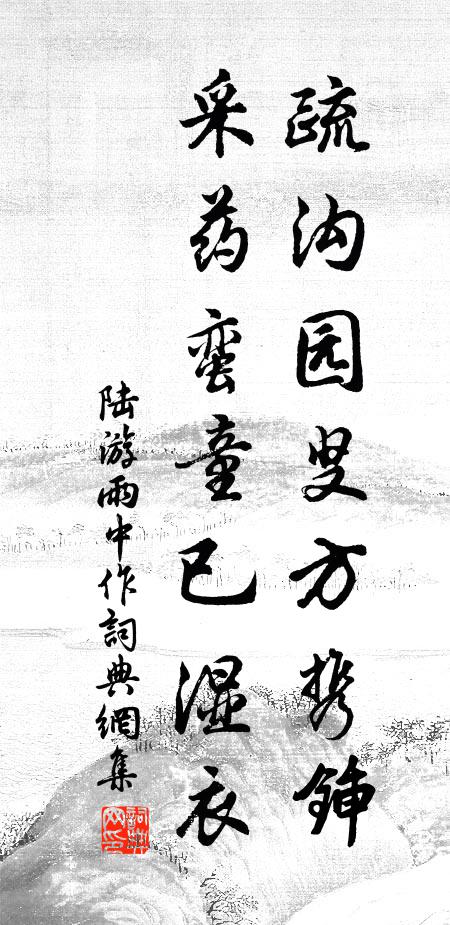 疏沟园叟方携锸
采药蛮童已湿衣
陆游雨中作詞典網集